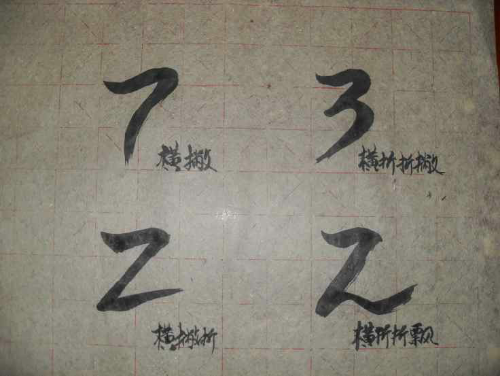 横撇
横折折撇
横撇折
横折折飘